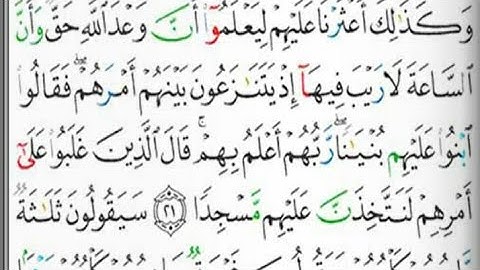 وَكَذَٰلِكَ أَعْثَرْنَا عَلَيْهِمْ لِيَعْلَمُوٓا۟ أَنَّ وَعْدَ ٱللَّهِ حَقٌّ وَأَنَّ
ٱلسَّاعَةَ لَا رَيْبَ فِيهَآ إِذْ يَتَنَٰزَعُونَ بَيْنَهُمْ أَمْرَهُمْ ۖ فَقَالُوا۟
ٱبْنُوا۟ عَلَيْهِم بُنْيَٰنًا ۖ رَّبُّهُمْ أَعْلَمُ بِهِمْ ۚ قَالَ ٱلَّذِينَ غَلَبُوا۟ عَلَىٰٓ
أَمْرِهِمْ لَنَتَّخِذَنَّ عَلَيْهِم مَّسْجِدًا ﴿٢١﴾ سَيَقُولُونَ ثَلَٰثَةٌ